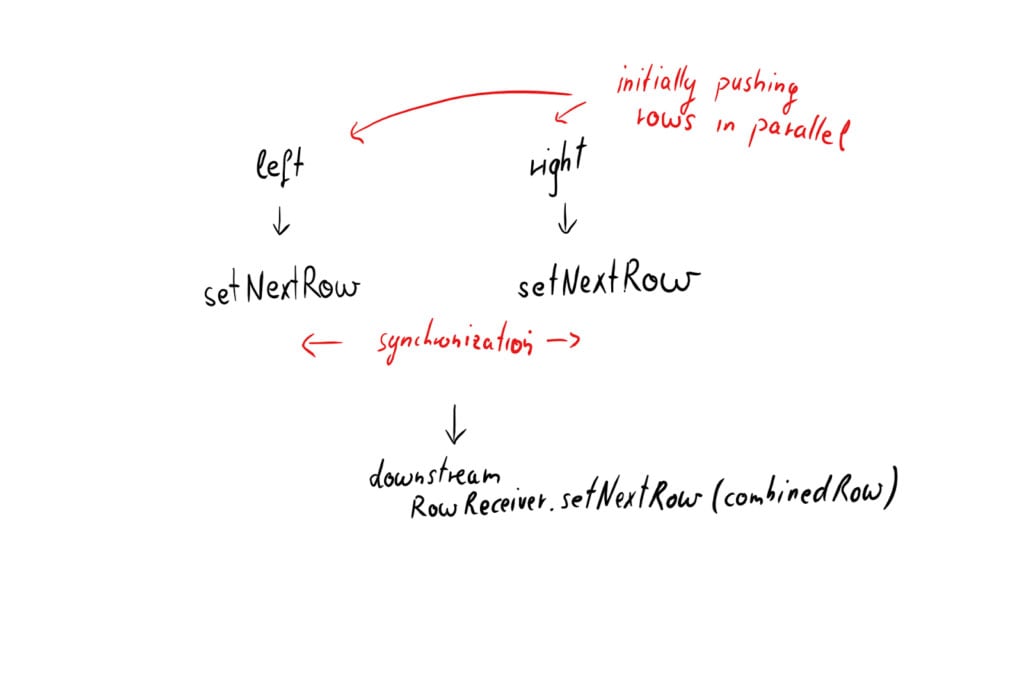 initially pushing
rows in parallel
left
right
setNextRow
setNextRow
synchronization
downstream
RowReceiver.setNextRow(combinedRow)